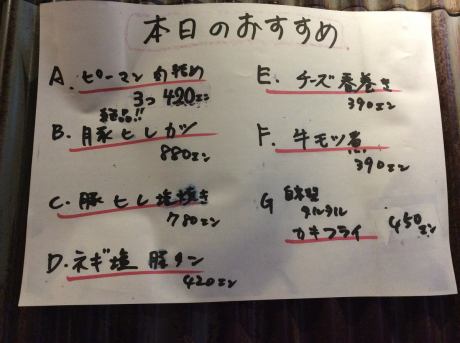 本日のおすすめ
A. ピーマン肉詰め
3つ 420エン
絶品!!
B. 豚ヒレカツ
880エン
C. 豚ヒレ塩焼き
780エン
D. ネギ塩 豚タン
420エン
E. チーズ春巻き
390エン
F. 牛モツ煮
390エン
G 自家製
タルタル
カキフライ
450エン